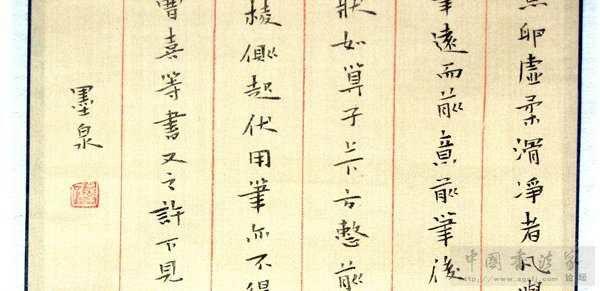 魚卵虛柔滑淨者凡學
筆遠而前意前筆後
狀如算子上下方整前
棱側起伏用筆亦不得
曹喜等書又之許下見
墨泉
中國書法家
论坛